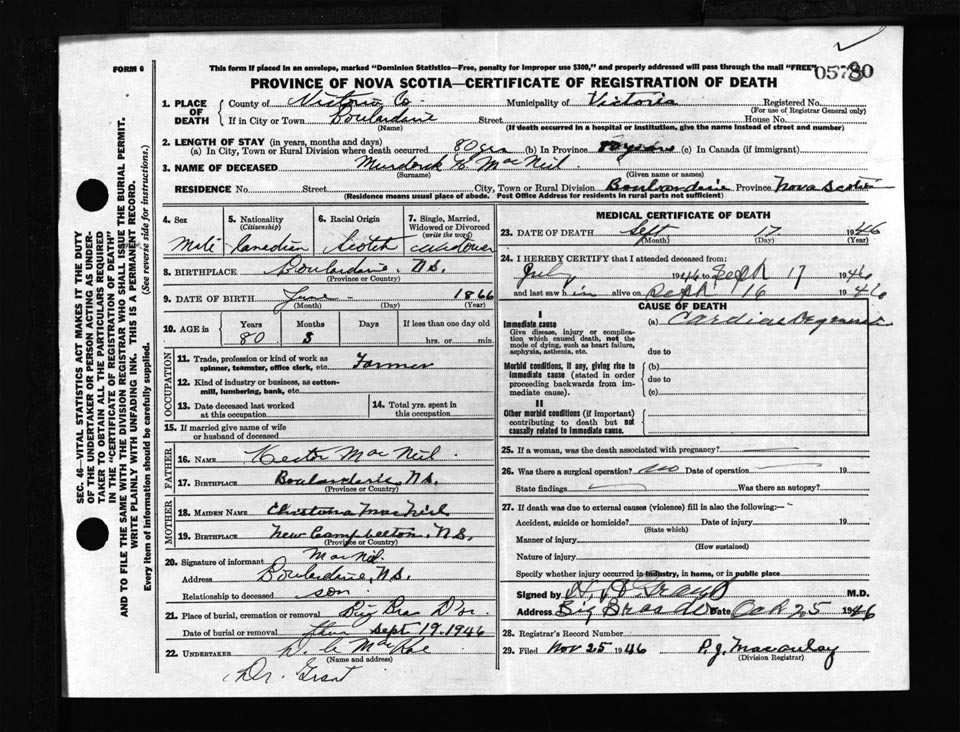 FORM 6
This form if placed in an envelope, marked "Dominion Statistics—Free, penalty for improper use $300," and properly addressed will pass through the mail "FREE"
PROVINCE OF NOVA SCOTIA—CERTIFICATE OF REGISTRATION OF DEATH
SEC. 46—VITAL STATISTICS ACT MAKES IT THE DUTY
OF THE UNDERTAKER OR PERSON ACTING AS UNDER-
TAKER TO OBTAIN ALL THE PARTICULARS REQUIRED
IN THE "CERTIFICATE OF REGISTRATION OF DEATH"
AND TO FILE THE SAME WITH THE DIVISION REGISTRAR WHO SHALL ISSUE THE BURIAL PERMIT.
WRITE PLAINLY WITH UNFADING INK. THIS IS A PERMANENT RECORD.
Every item of Information should be carefully supplied. (See reverse side for instructions.)
1. PLACE OF DEATH
County of Victoria Co. Municipality of Victoria Registered No.
(For use of Registrar General only)
If in City or Town Boularderie Street House No.
(Name) (If death occurred in a hospital or institution, give the name instead of street and number)
2. LENGTH OF STAY (in years, months and days)
(a) In City, Town or Rural Division where death occurred 80 yrs (b) In Province 80 years (c) In Canada (if immigrant)
3. NAME OF DECEASED Murdock Mac Neil
(Surname) (Given name or names)
RESIDENCE No. Street City, Town or Rural Division Boularderie Province Nova Scotia
(Residence means usual place of abode. Post Office Address for residents in rural parts not sufficient)
4. Sex
Male
5. Nationality
(Citizenship)
Canadian
6. Racial Origin
Scotch
7. Single, Married,
Widowed or Divorced
(write the word)
Widower
8. BIRTHPLACE Boularderie N.S.
(Province or Country)
9. DATE OF BIRTH June - 1866
(Month) (Day) (Year)
10. AGE in
Years Months Days If less than one day old
80 3 hrs. or min.
OCCUPATION
11. Trade, profession or kind of work as
spinner, teamster, office clerk, etc. Farmer
12. Kind of industry or business, as cotton-
mill, lumbering, bank, etc.
13. Date deceased last worked
at this occupation
14. Total yrs. spent in
this occupation
15. If married give name of wife
or husband of deceased
FATHER
16. NAME Hector Mac Neil
17. BIRTHPLACE Boularderie, N.S.
(Province or Country)
MOTHER
18. MAIDEN NAME Christena MacNeil
19. BIRTHPLACE New Campbellton, N.S.
(Province or Country)
20. Signature of informant MacNeil
Address Boularderie, N.S.
Relationship to deceased son
21. Place of burial, cremation or removal Big Bras D'or
Date of burial or removal Sept 19. 1946
22. UNDERTAKER MacRae
(Name and address)
Dr. Grant
MEDICAL CERTIFICATE OF DEATH
23. DATE OF DEATH Sept 17 1946
(Month) (Day) (Year)
24. I HEREBY CERTIFY that I attended deceased from:
July 1946 to Sept 17 1946
and last saw him alive on Sept 16 1946
CAUSE OF DEATH
I
Immediate cause
Give disease, injury or complica-
tion which caused death, not the
mode of dying, such as heart failure,
asphyxia, asthenia, etc.
(a) Cardiac
due to
Morbid conditions, if any, giving rise to
immediate cause (stated in order
proceeding backwards from im-
mediate cause).
(b)
due to
(c)
II
Other morbid conditions (if important)
contributing to death but not
causally related to immediate cause.
25. If a woman, was the death associated with pregnancy?
26. Was there a surgical operation? no Date of operation 19
State findings Was there an autopsy?
27. If death was due to external causes (violence) fill in also the following:—
Accident, suicide or homicide? Date of injury 19
(State which)
Manner of injury
(How sustained)
Nature of injury
Specify whether injury occurred in industry, in home, or in public place
Signed by Grant M.D.
Address Big Bras d'Or Date Oct 25 1946
28. Registrar's Record Number
29. Filed Nov 25 1946 P. J. Macaulay
(Division Registrar)